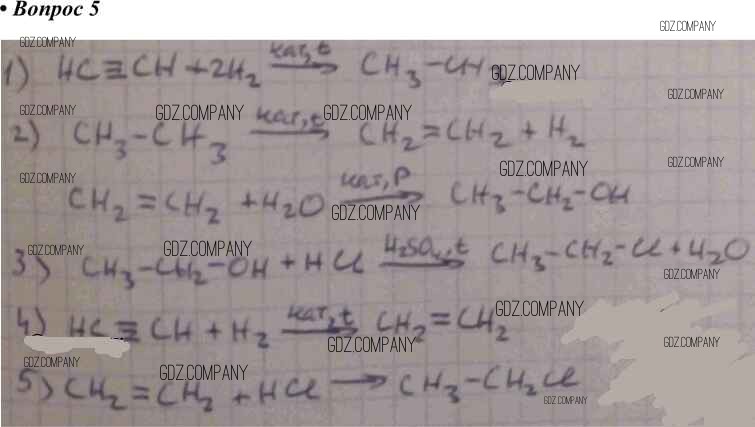 • Вопрос 5
GDZ.COMPANY
GDZ.COMPANY
1) HC≡CH + 2H₂ кат, t → CH₃-CH₃
GDZ.COMPANY
GDZ.COMPANY
GDZ.COMPANY GDZ.COMPANY GDZ.COMPANY
2) CH₃-CH₃ кат, t → CH₂=CH₂ + H₂
GDZ.COMPANY
GDZ.COMPANY
GDZ.COMPANY
CH₂=CH₂ + H₂O кат, P → CH₃-CH₂-OH
GDZ.COMPANY
GDZ.COMPANY GDZ.COMPANY
3) CH₃-CH₂-OH + HCl H₂SO₄, t → CH₃-CH₂-Cl + H₂O
GDZ.COMPANY
GDZ.COMPANY
4) HC≡CH + H₂ кат, t → CH₂=CH₂
GDZ.COMPANY
GDZ.COMPANY
GDZ.COMPANY
GDZ.COMPANY
5) CH₂=CH₂ + HCl → CH₃-CH₂Cl
GDZ.COMPANY